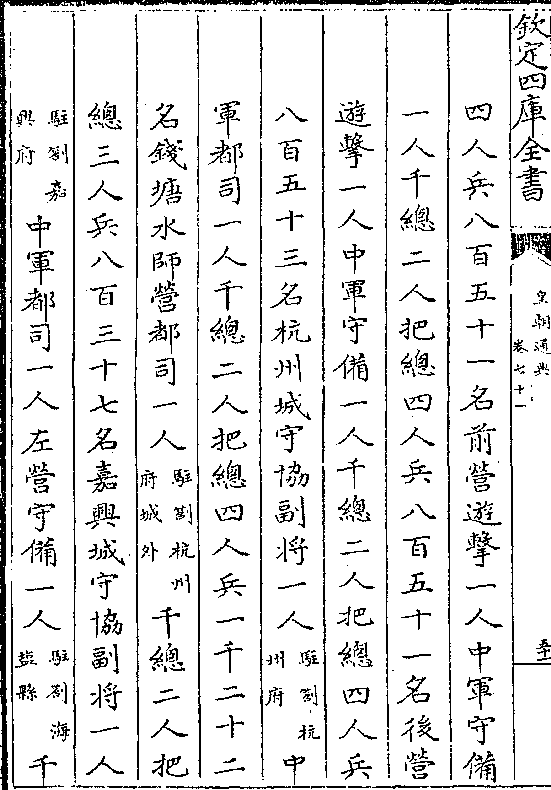 欽定四庫全書
皇朝通典
卷七十一
四人兵八百五十一名前營遊擊一人中軍守備
一人千總二人把總四人兵八百五十一名後營
遊擊一人中軍守備一人千總二人把總四人兵
八百五十三名杭州城守協副將一人駐劄杭州府中
軍都司一人千總二人把總四人兵一千二十二
名錢塘水師營都司一人駐劄杭州府城外千總二人把
總三人兵八百三十七名嘉興城守協副將一人
駐劄嘉興府中軍都司一人左營守備一人駐劄海鹽縣千